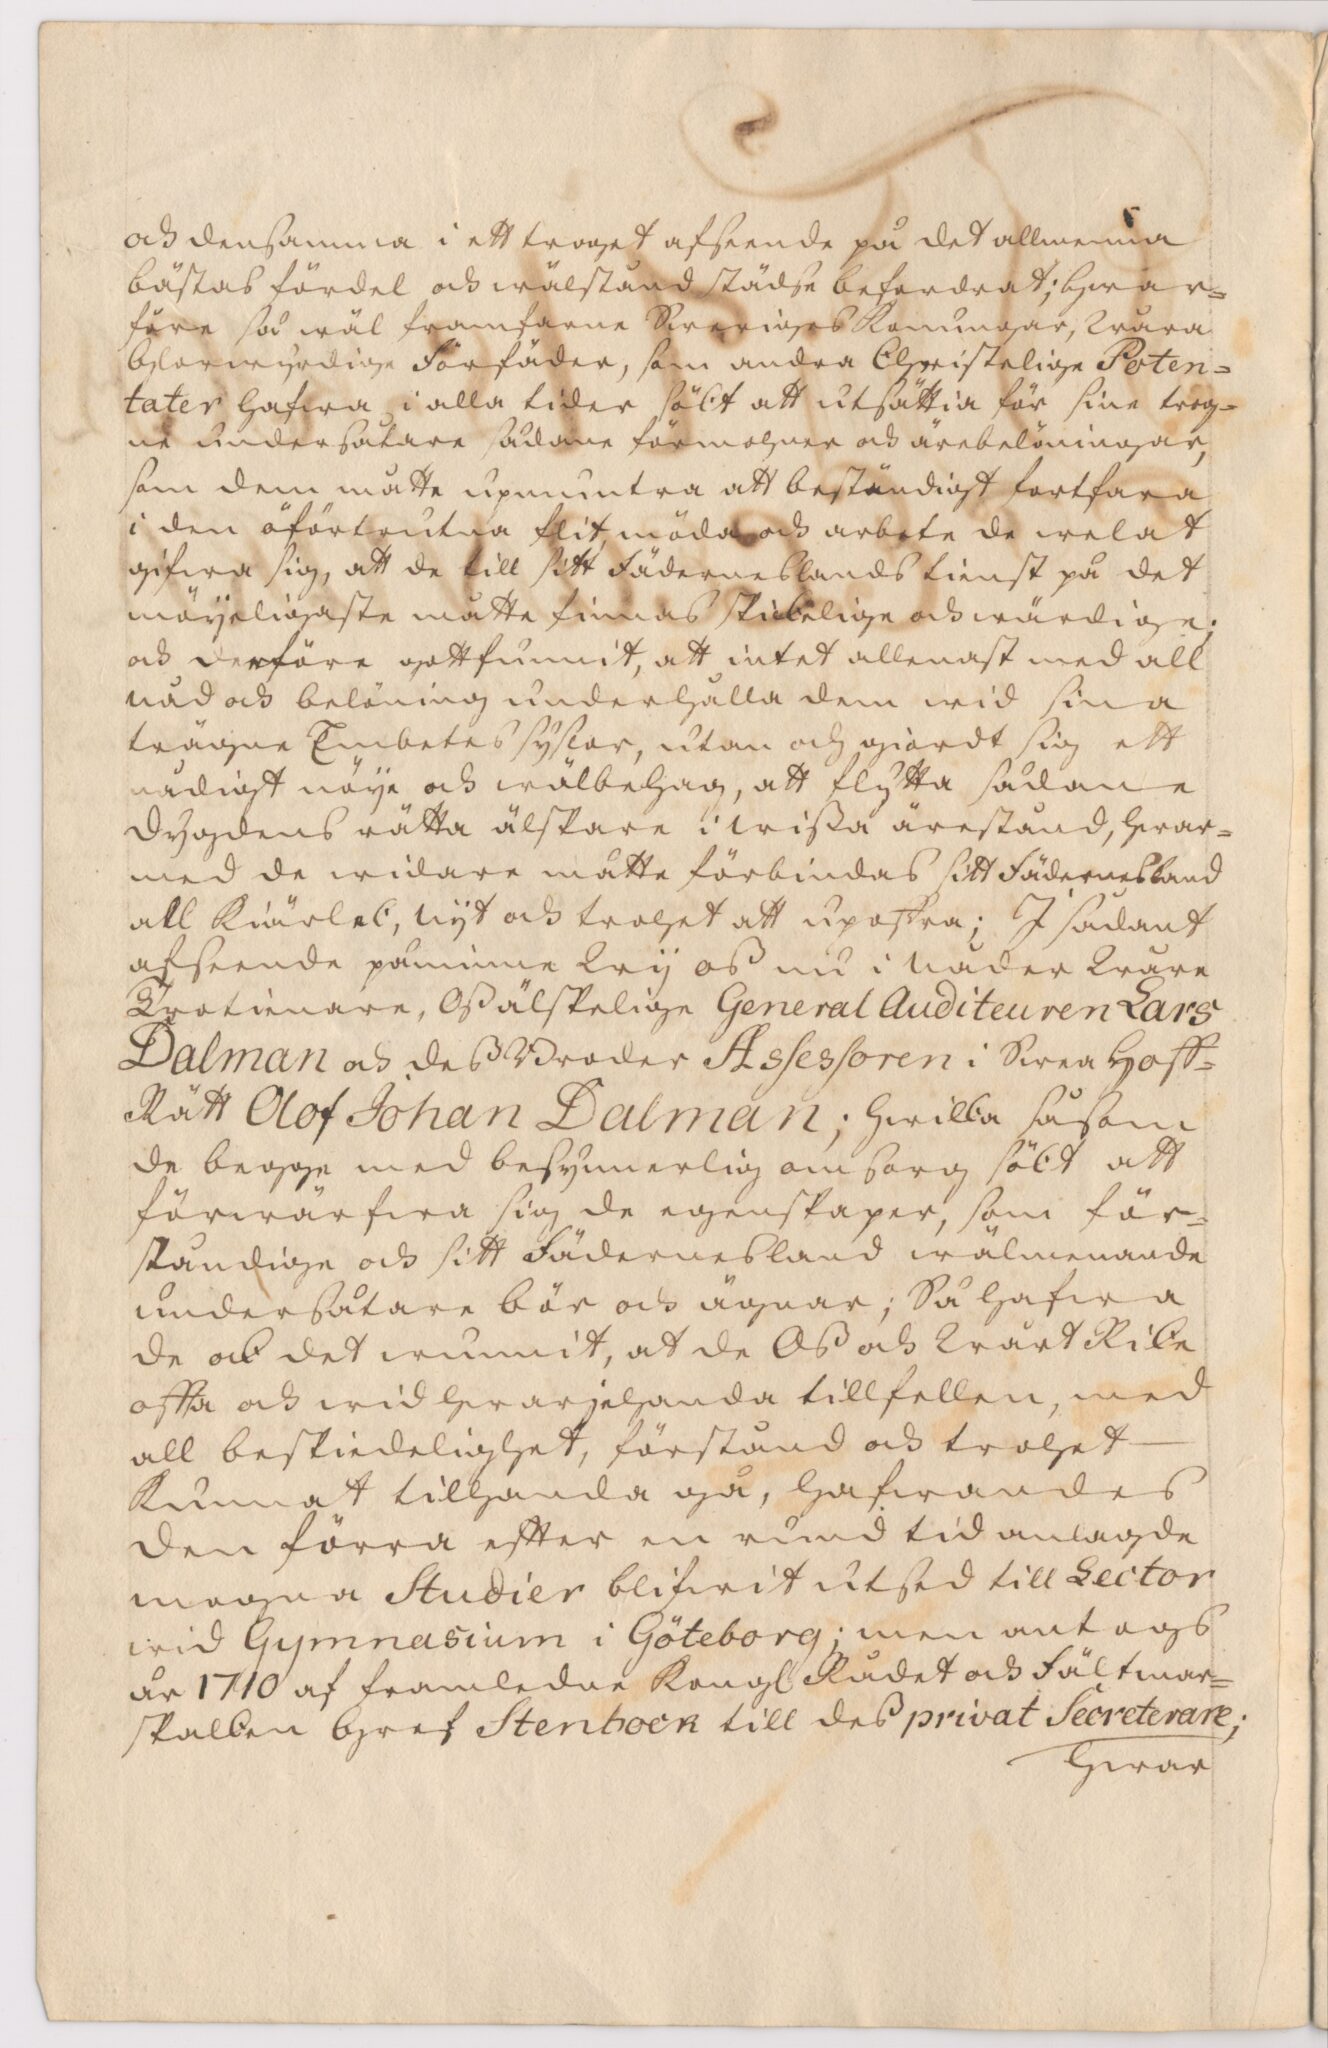 och densamma i ett troget afseende på det allmenna
bästas fördel och wälstånd städse befordrat; hwar=
före så wäl framfarne Sweriges Konungar, wåra
glorwyrdige Förfäder, som andra Christelige Poten=
tater hafwa i alla tider sökt att utsättia för sine trog=
ne undersåtare sådane förmohner och ärebelöningar,
som dem måtte upmuntra att beständigt fortfara
i den oförtrutna flit, möda och arbete de welat
gifwa sig, att de till sitt Fäderneslands tienst på det
möyeligaste måtte finnas skickelige och wärdige;
och derföre gottfunnit, att intet allenast med all
nåd och belöning underhålla dem wid sina
trägne Embetes syslor, utan och giordt sig ett
nådigt nöye och wälbehag, att flytta sådane
dygdens rätta älskare i wissa ärestånd, hwar=
med de widare måtte förbindas sitt Fädernesland
all Kiärlek, nijt och trohet att upoffra; I sådant
afseende påminne Wij oss nu i Nåder Wåre
Trotienare, Oss älskelige General Auditeuren Lars
Dalman och dess Broder Assessoren i Swea Hoff=
Rätt Olof Johan Dalman; hwilka såsom
de begge med besynnerlig omsorg sökt att
förwärfwa sig de egenskaper, som för=
ståndige och sitt Fädernesland wälmenande
undersåtare bör och ägnar; Så hafwa
de ock det wunnit, at de Oss och Wårt Rike
offta och wid hwarjehanda tillfellen, med
all beskiedelighet, förstånd och trohet
kunnat tillhanda gå, hafwandes
den förra effter en rund tid anlagde
mogna Studier blifwit utsed till Lector
wid Gymnasium i Göteborg; men antogs
år 1710 af framledne Kongl Rådet och Fältmar=
skalken Gref Stenbock till dess privat Secreterare;
Hwar